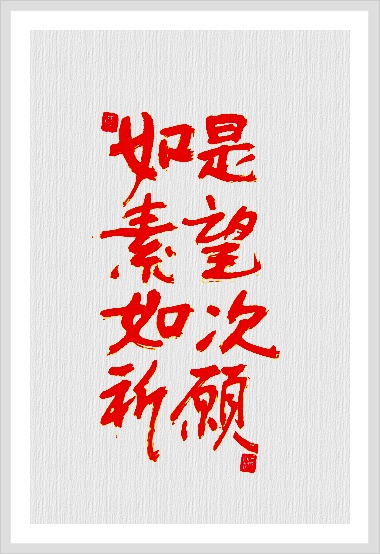 如是
素望
如次
祈願